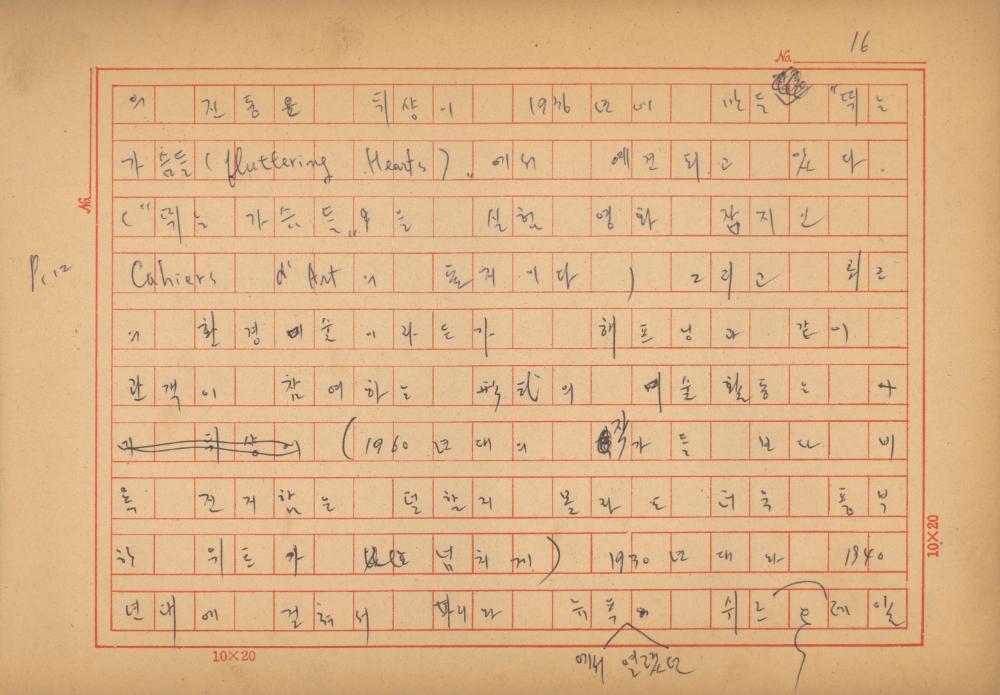 16
No.
의 진동은 뒤샹이 1936년에 만든 "뛰는
가슴들(fluttering Hearts)"에서 예견되고 있다.
("뛰는 가슴들"은 실험 영화 잡지인
Cahiers d'Art의 표지이다) 그리고 최근
의 환경예술이라든가 해프닝과 같이
관객이 참여하는 형식의 예술활동은
(1960년대의 작가들 보다 비
록 진지함은 덜할지 몰라도 더욱 풍부
한 위트가 넘치게) 1930년대와 1940
년대에 걸쳐서 파리와 뉴욕 쉬르레알
에서 열렸던
No.
P. 12
10×20
10×20